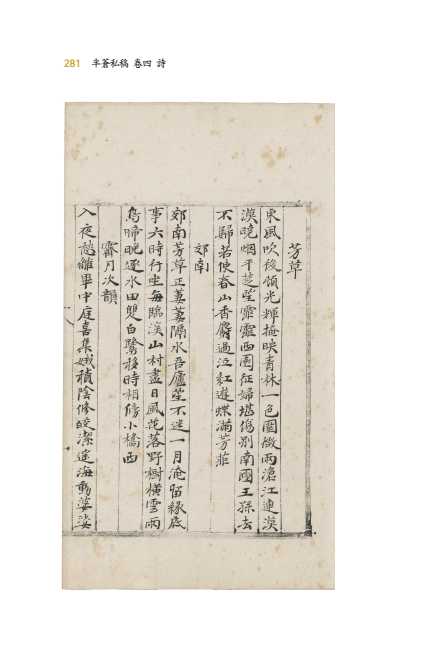 281 半蒼私稿 卷四 詩
芳草
東風吹後領光輝掩映青林一色圍微雨滄江連漠
漠曉烟平楚望霏霏西園征婦堪傷別南國王孫去
不歸若使春山香麝過泛紅遊蝶滿芳菲
郊南
郊南芳草正萋萋隔水吾廬望不迷一月淹留緣底
事六時行坐每臨溪山村盡日風花落野樹橫雲雨
鳥啼晩逐水田雙白鷺移時相傍小橋西
霽月次韻
入夜愁離畢中庭喜集娥積陰修皎潔遙海動婆娑